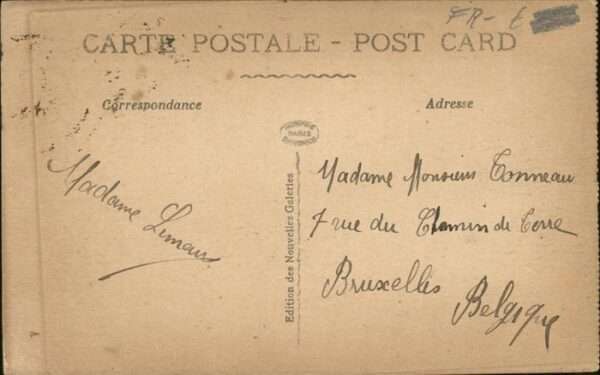 FR- E
CARTE POSTALE - POST CARD
Correspondance
Adresse
PARIS
Madame Limair
Edition des Nouvelles Galeries
Madame Monsieur Tonneau
7 rue du Chemin de Terre
Bruxelles
Belgique